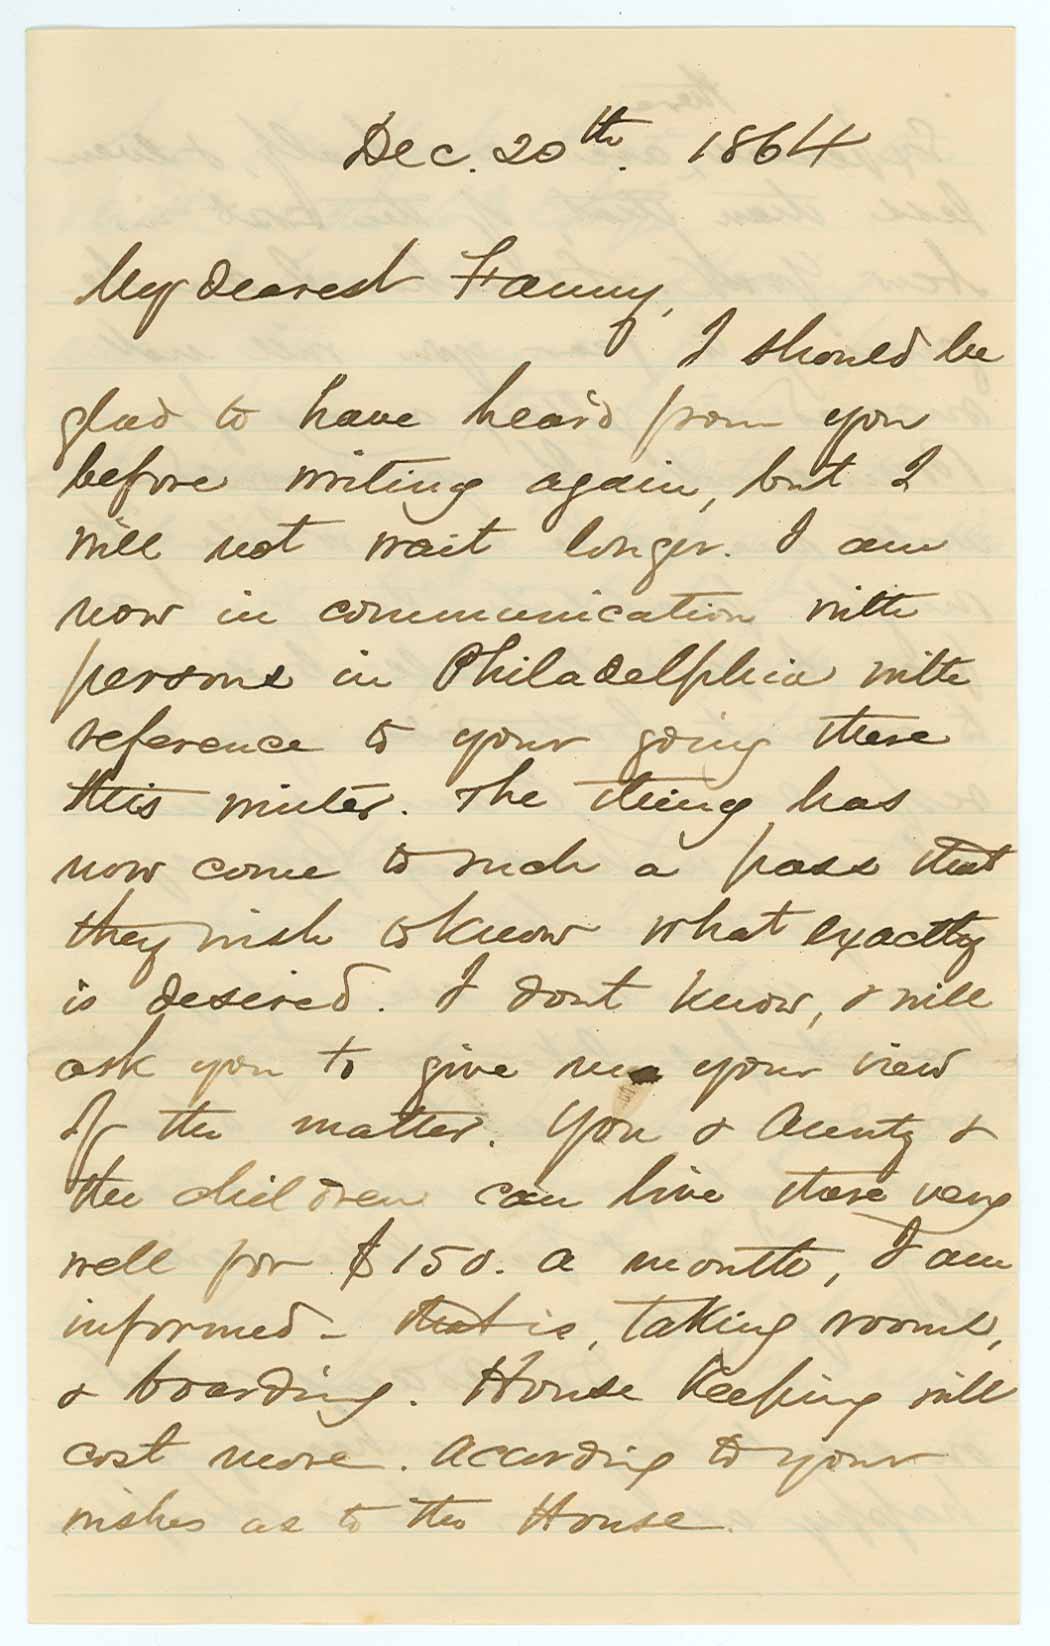 Dec. 20th. 1864
My dearest Fanny,
I should be
glad to have heard from you
before writing again, but I
will not wait longer. I am
now in communication with
persons in Philadelphia with
reference to your going there
this winter. The thing has
now come to such a pass that
they wish to know what exactly
is desired. I dont know, & will
ask you to give me your view
of the matter. You & Aunty &
the children can live there very
well for $150. a month, I am
informed - that is, taking rooms,
& boarding. House keeping will
cost more. According to your
wishes as to the House.